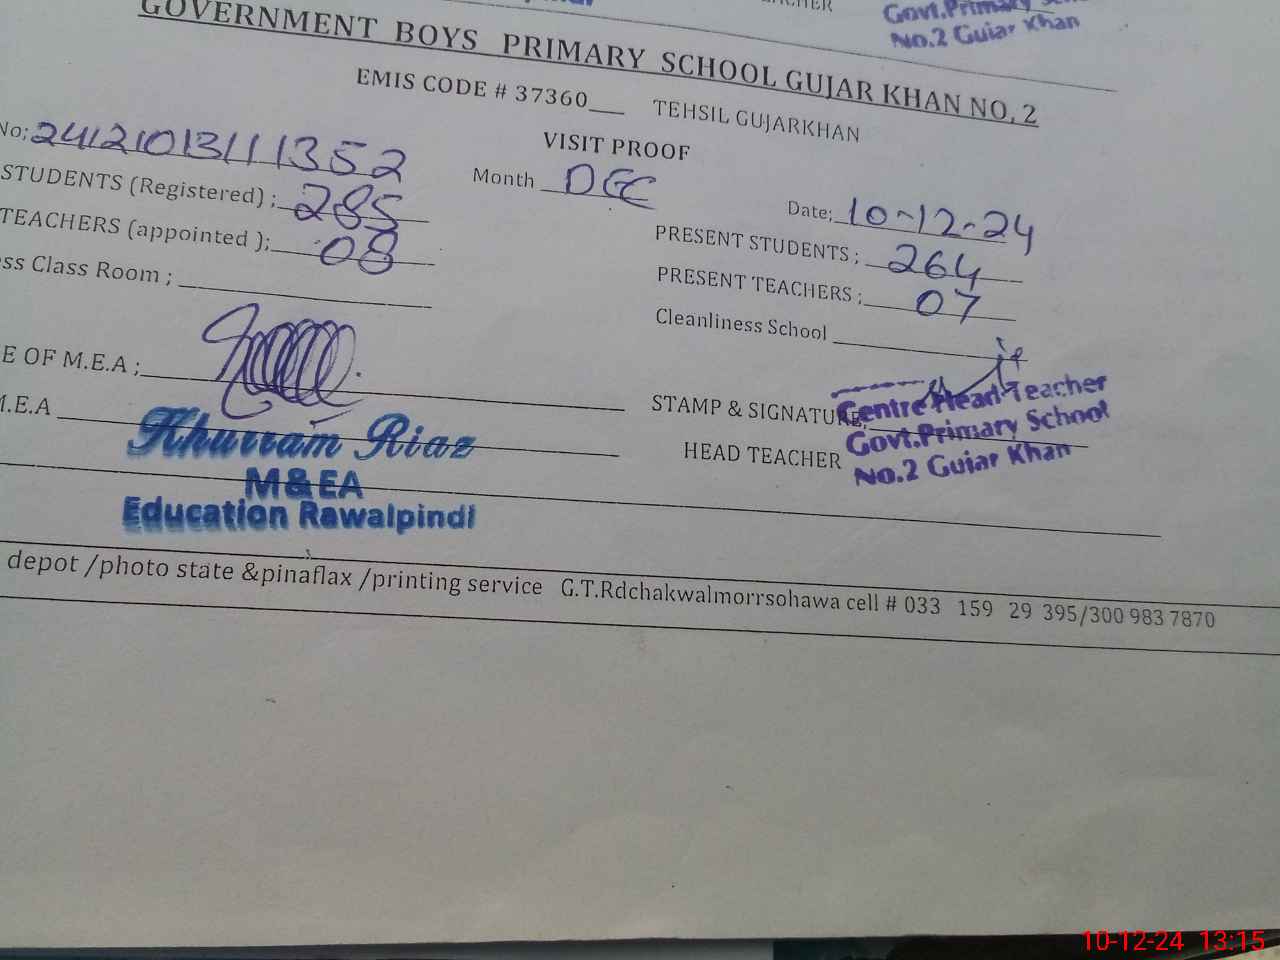 Govt.Primary
No.2 Gujar Khan
GOVERNMENT BOYS PRIMARY SCHOOL GUJAR KHAN NO, 2
EMIS CODE # 37360___ TEHSIL GUJARKHAN
VISIT PROOF
No; 2412101311352
Month DEC
Date; 10-12-24
STUDENTS (Registered) ; 285
PRESENT STUDENTS ; 264
TEACHERS (appointed ); 08
PRESENT TEACHERS ; 07
ess Class Room ;
Cleanliness School
E OF M.E.A ;
STAMP & SIGNATURE;
M.E.A
HEAD TEACHER
Centre Head Teacher
Govt.Primary School
No.2 Gujar Khan
Khurram Riaz
M&EA
Education Rawalpindi
depot /photo state &pinaflax /printing service G.T.Rdchakwalmorrsohawa cell # 033 159 29 395/300 983 7870
10-12-24 13:15